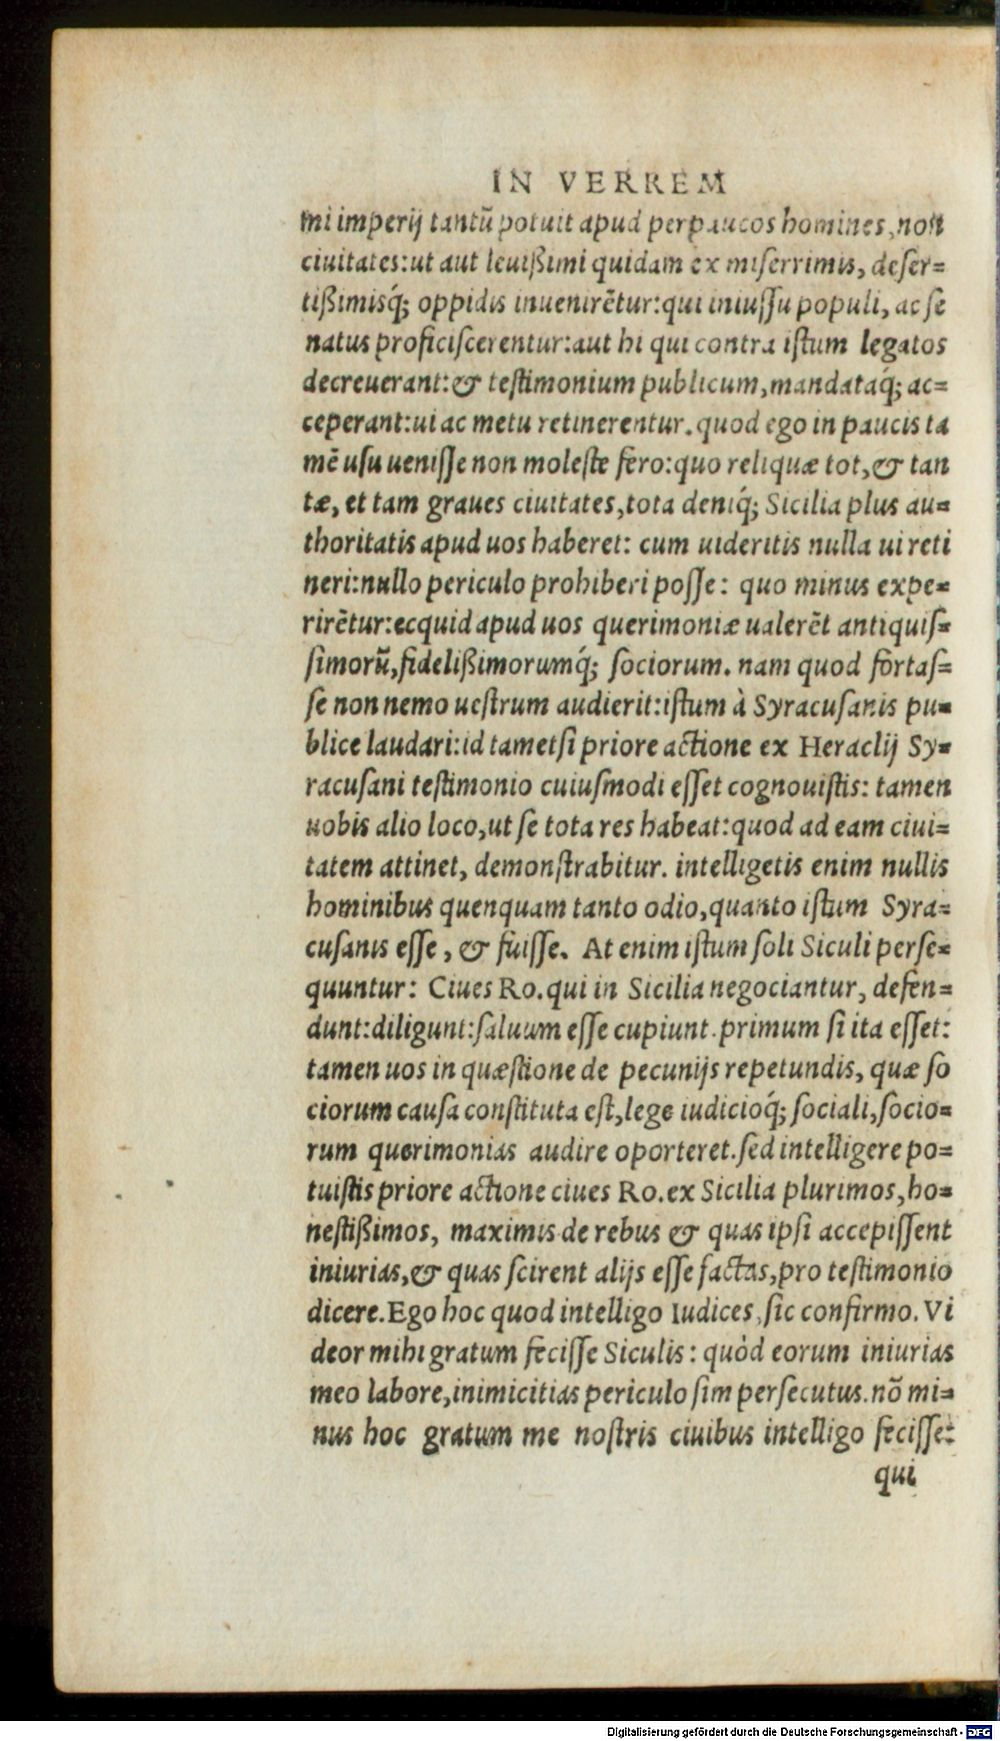 IN VERREM
mi imperij tantũ potuit apud perpaucos homines, non
ciuitates: ut aut leuißimi quidam ex miserrimis, deser=
tißimisq́; oppidis inuenirẽtur: qui iniussu populi, ac se
natus proficiscerentur: aut hi qui contra istum legatos
decreuerant: & testimonium publicum, mandataq́; ac=
ceperant: ui ac metu retinerentur. quod ego in paucis ta
mẽ usu uenisse non moleste fero: quo reliquæ tot, & tan
tæ, et tam graues ciuitates, tota deniq́; Sicilia plus au=
thoritatis apud uos haberet: cum uideritis nulla ui reti
neri: nullo periculo prohiberi posse: quo minus expe=
rirẽtur: ecquid apud uos querimoniæ ualerẽt antiquis=
simorũ, fidelißimorumq́; sociorum. nam quod fortas=
se non nemo uestrum audierit: istum à Syracusanis pu=
blice laudari: id tametsi priore actione ex Heraclij Sy=
racusani testimonio cuiusmodi esset cognouistis: tamen
uobis alio loco, ut se tota res habeat: quod ad eam ciui=
tatem attinet, demonstrabitur. intelligetis enim nullis
hominibus quenquam tanto odio, quanto istum Syra=
cusanis esse, & fuisse. At enim istum soli Siculi perse=
quuntur: Ciues Ro. qui in Sicilia negociantur, defen=
dunt: diligunt: saluum esse cupiunt. primum si ita esset:
tamen uos in quæstione de pecunijs repetundis, quæ so
ciorum causa constituta est, lege iudicioq́; sociali, socio=
rum querimonias audire oporteret. sed intelligere po=
tuistis priore actione ciues Ro. ex Sicilia plurimos, ho=
nestißimos, maximis de rebus & quas ipsi accepissent
iniurias, & quas scirent alijs esse factas, pro testimonio
dicere. Ego hoc quod intelligo Iudices, sic confirmo. Vi
deor mihi gratum fecisse Siculis: quòd eorum iniurias
meo labore, inimicitias periculo sim persecutus. nõ mi=
nus hoc gratum me nostris ciuibus intelligo fecisse:
qui
Digitalisierung gefördert durch die Deutsche Forschungsgemeinschaft - DFG